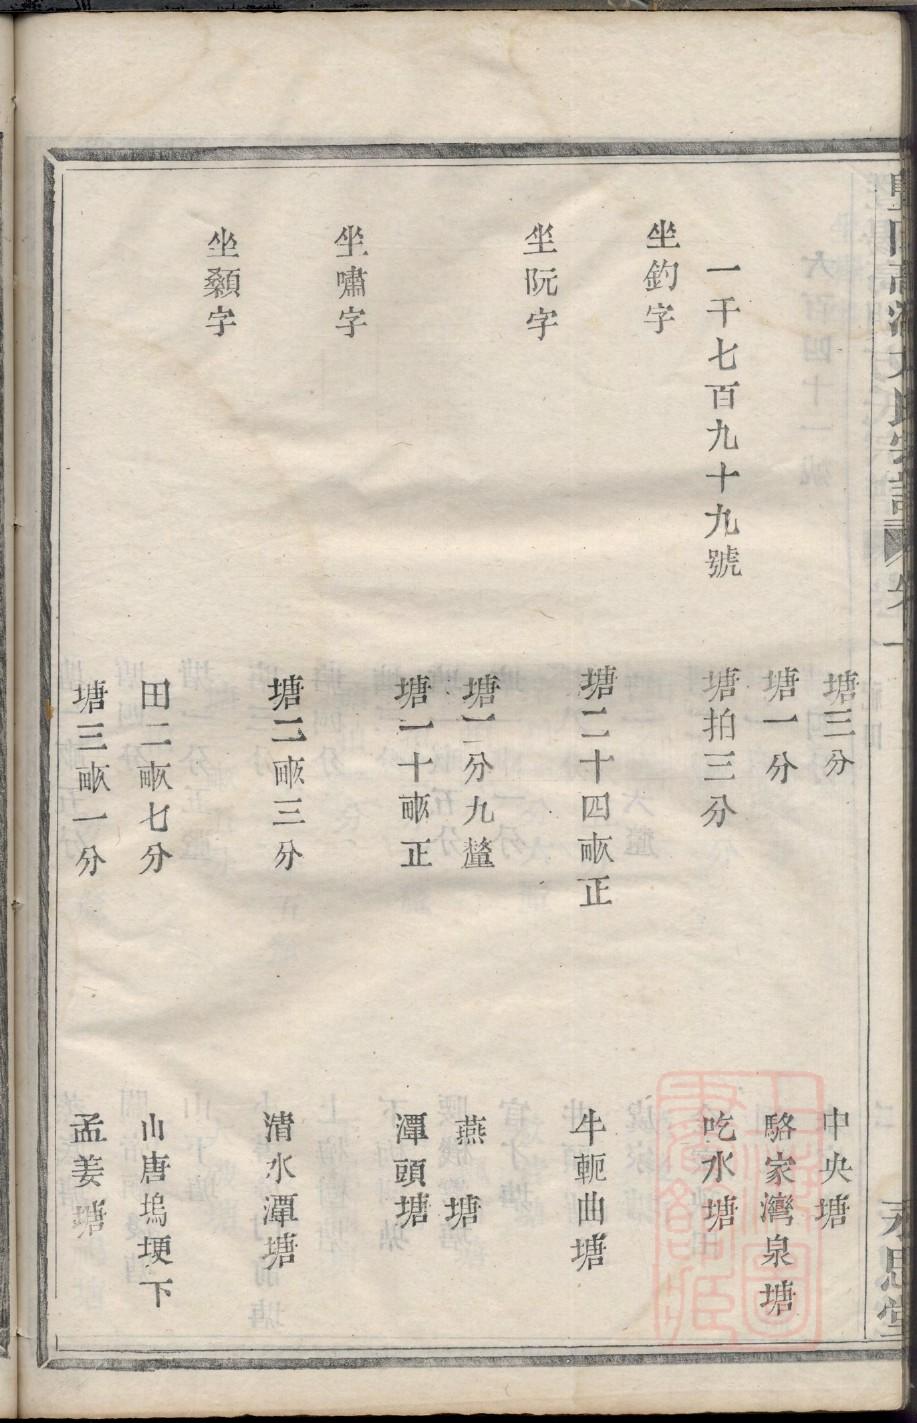 塘三分　中央塘
塘一分　駱家灣泉塘
一千七百九十九號　塘拍三分　吃水塘
坐釣字
塘二十四畝正　牛軛曲塘
坐阮字
塘一分九釐　燕塘
塘一十畝正　潭頭塘
坐嘯字
塘二畝三分　清水潭塘
坐纇字
田二畝七分　山唐塢埂下
塘三畝一分　孟姜塘